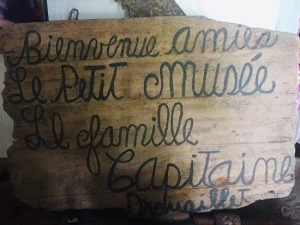 Bienvenue amies
Le Petit Musée
Le famille
Capitaine
Drouaillet